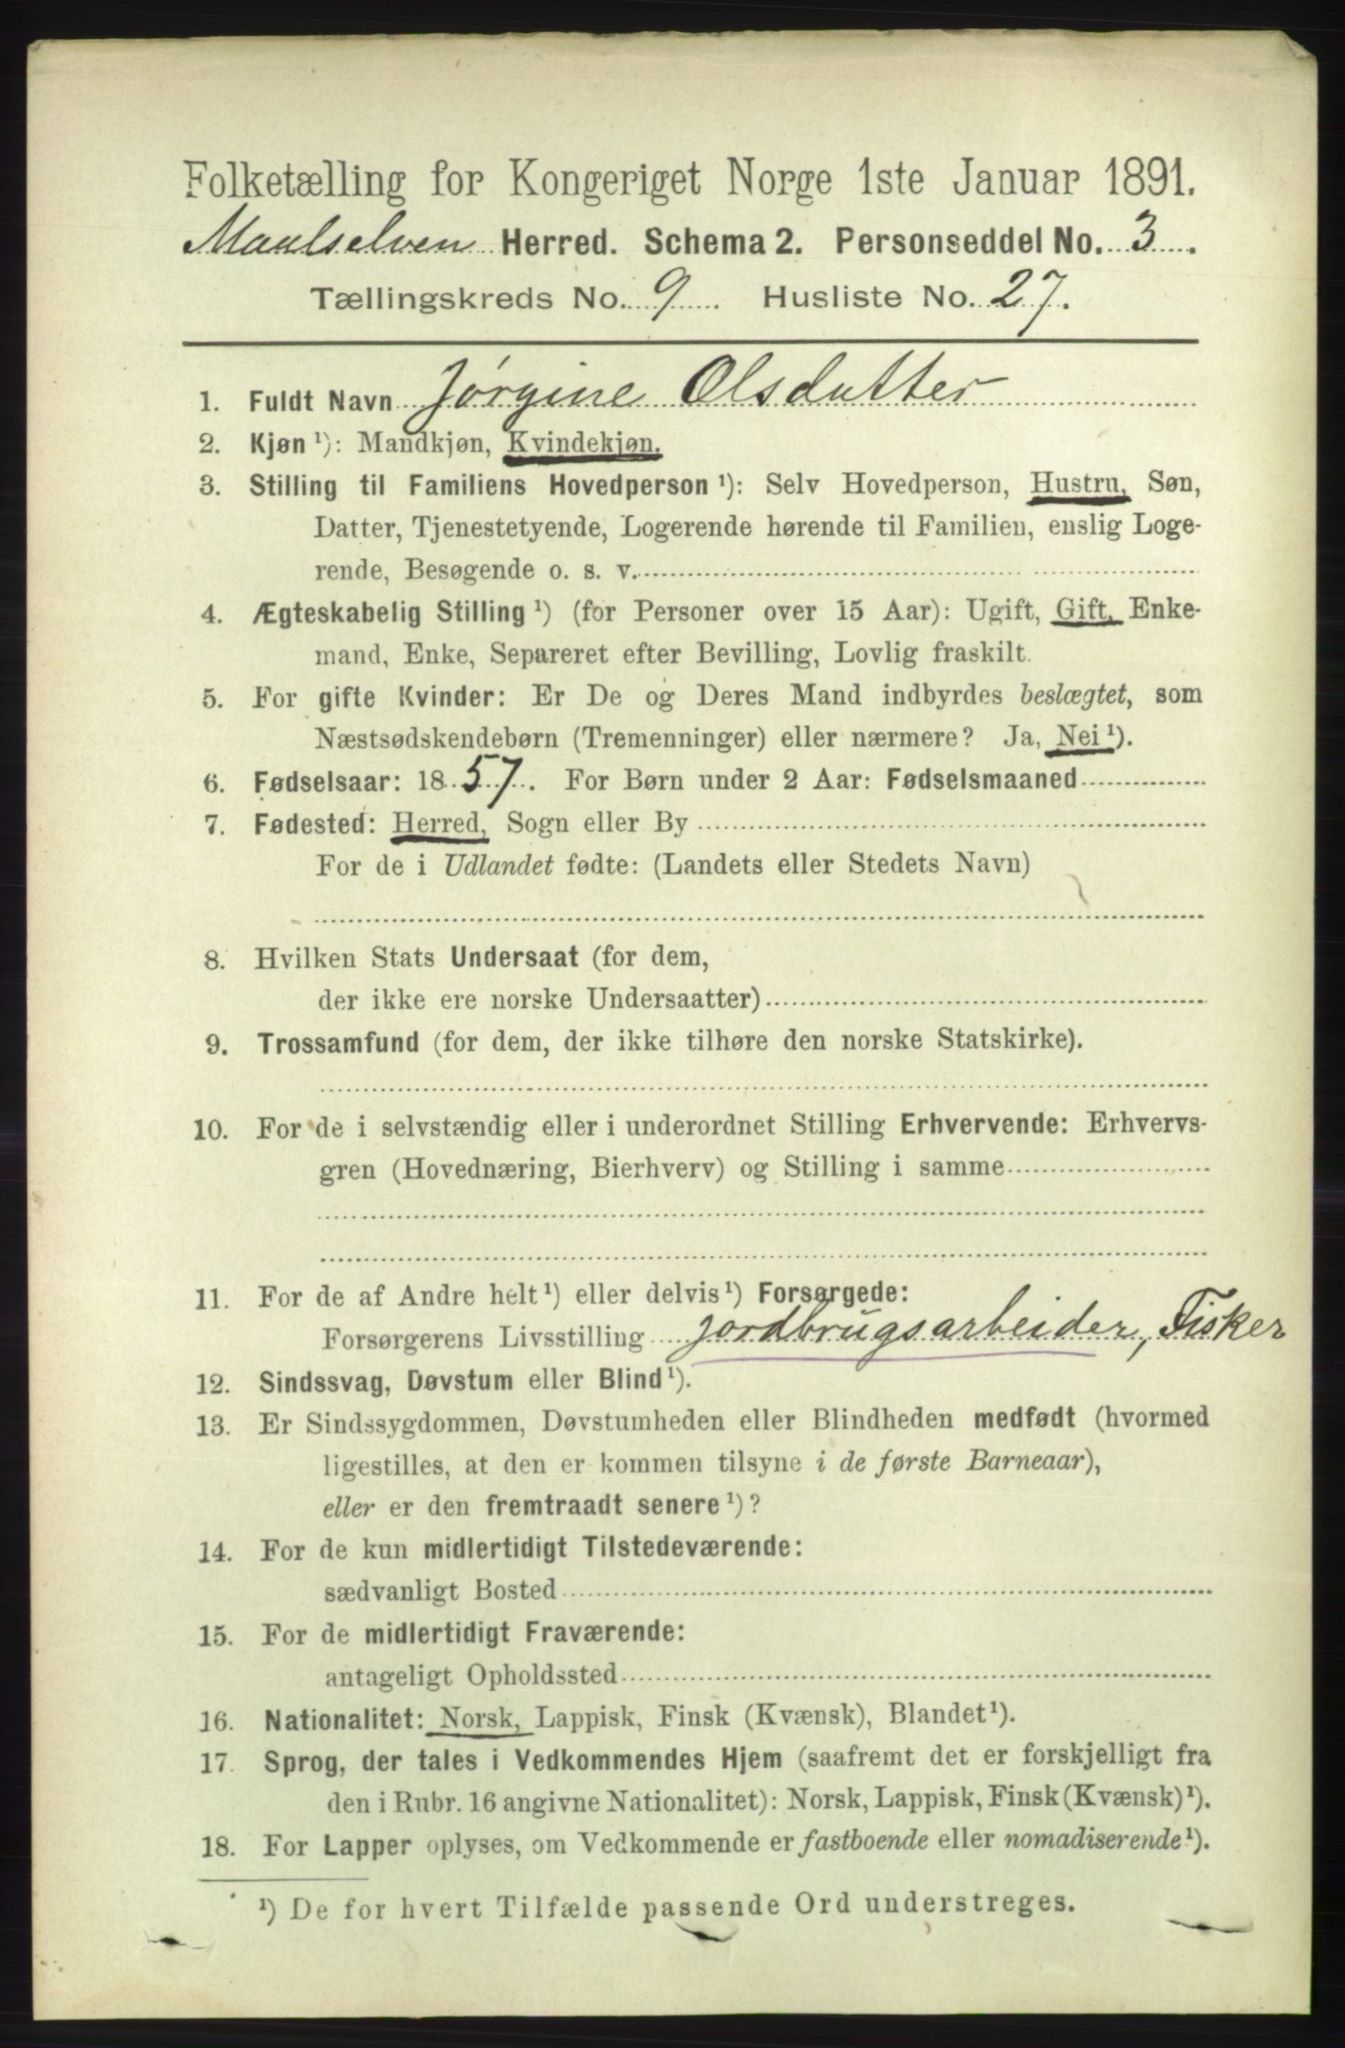 Folketælling for Kongeriget Norge 1ste Januar 1891.
Maalselven Herred. Schema 2. Personseddel No. 3.
Tællingskreds No. 9. Husliste No. 27.
1. Fuldt Navn Jørgine Olsdatter
2. Kjøn ¹): Mandkjøn, Kvindekjøn.
3. Stilling til Familiens Hovedperson ¹): Selv Hovedperson, Hustru, Søn,
Datter, Tjenestetyende, Logerende hørende til Familien, enslig Loge-
rende, Besøgende o. s. v.
4. Ægteskabelig Stilling ¹) (for Personer over 15 Aar): Ugift, Gift, Enke-
mand, Enke, Separeret efter Bevilling, Lovlig fraskilt.
5. For gifte Kvinder: Er De og Deres Mand indbyrdes beslægtet, som
Næstsødskendebørn (Tremenninger) eller nærmere? Ja, Nei ¹).
6. Fødselsaar: 1857. For Børn under 2 Aar: Fødselsmaaned
7. Fødested: Herred, Sogn eller By
For de i Udlandet fødte: (Landets eller Stedets Navn)
8. Hvilken Stats Undersaat (for dem,
der ikke ere norske Undersaatter)
9. Trossamfund (for dem, der ikke tilhøre den norske Statskirke).
10. For de i selvstændig eller i underordnet Stilling Erhvervende: Erhvervs-
gren (Hovednæring, Bierhverv) og Stilling i samme
11. For de af Andre helt ¹) eller delvis ¹) Forsørgede:
Forsørgerens Livsstilling jordbrugsarbeider, Fisker
12. Sindssvag, Døvstum eller Blind ¹).
13. Er Sindssygdommen, Døvstumheden eller Blindheden medfødt (hvormed
ligestilles, at den er kommen tilsyne i de første Barneaar),
eller er den fremtraadt senere ¹)?
14. For de kun midlertidigt Tilstedeværende:
sædvanligt Bosted
15. For de midlertidigt Fraværende:
antageligt Opholdssted
16. Nationalitet: Norsk, Lappisk, Finsk (Kvænsk), Blandet ¹).
17. Sprog, der tales i Vedkommendes Hjem (saafremt det er forskjelligt fra
den i Rubr. 16 angivne Nationalitet): Norsk, Lappisk, Finsk (Kvænsk) ¹).
18. For Lapper oplyses, om Vedkommende er fastboende eller nomadiserende ¹).
¹) De for hvert Tilfælde passende Ord understreges.